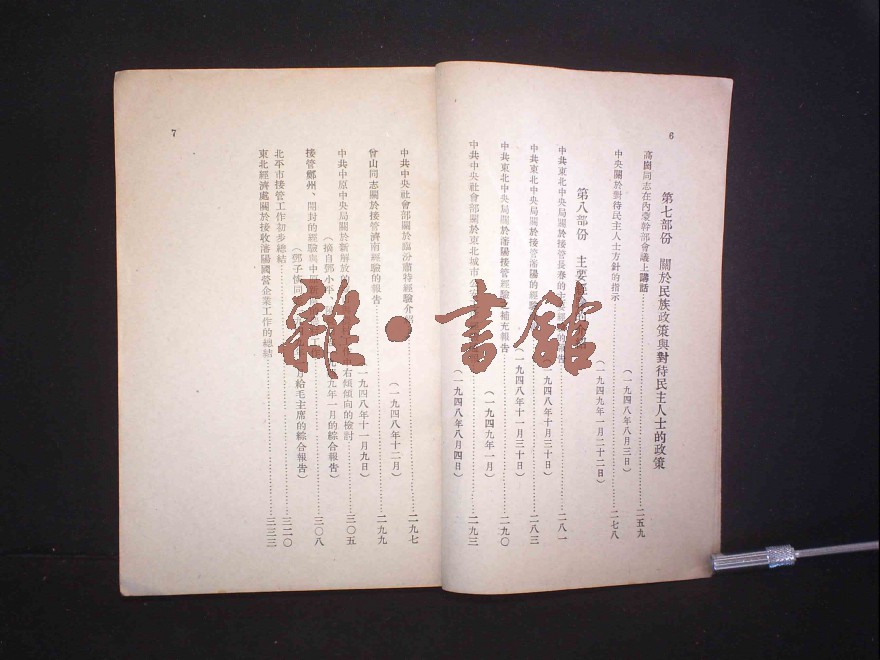 6
第七部份 關於民族政策與對待民主人士的政策
高崗同志在內蒙幹部會議上講話……二五九
(一九四八年八月三日)
中央關於對待民主人士方針的指示……二七八
(一九四九年一月二十二日)
第八部份 主要經驗介紹
中共東北中央局關於接管長春的主要經驗的報告……二八一
(一九四八年十月三十日)
中共東北中央局關於接管瀋陽的經驗……二八三
(一九四八年十一月三十日)
中共東北中央局關於瀋陽接管經驗之補充報告……二九〇
(一九四九年一月)
中共中央社會部關於東北城市公安……二九三
(一九四八年八月四日)
7
中共中央社會部關於臨汾蕭特經驗介紹……二九七
(一九四八年十二月)
曾山同志關於接管濟南經驗的報告……二九九
(一九四八年十一月九日)
中共中原中央局關於新解放的 右傾傾向的檢討……三〇五
(摘自鄧小平 九年一月的綜合報告)
接管鄭州、開封的經驗與中原 工作……三〇八
(鄧子恢同 月給毛主席的綜合報告)
北平市接管工作初步總結……三二〇
東北經濟處關於接收瀋陽國營企業工作的總結……三三三
雜·書館